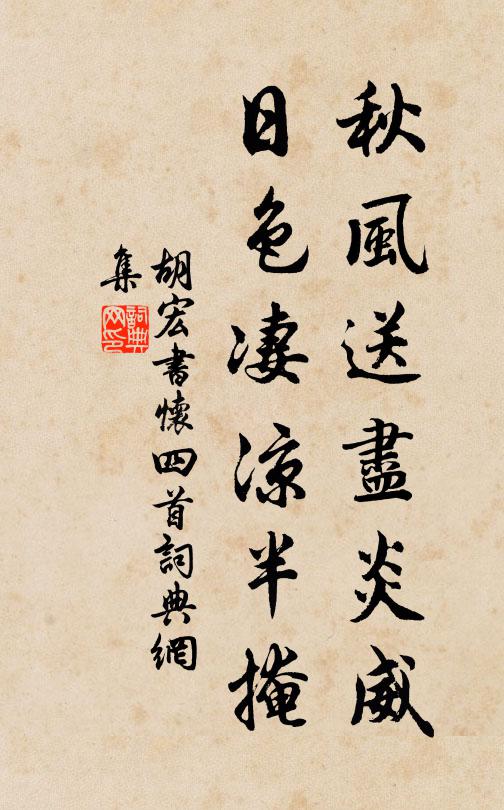 秋風送盡炎威
日色凄涼半掩
胡宏書懷四首詞典網
集
詞典
网印